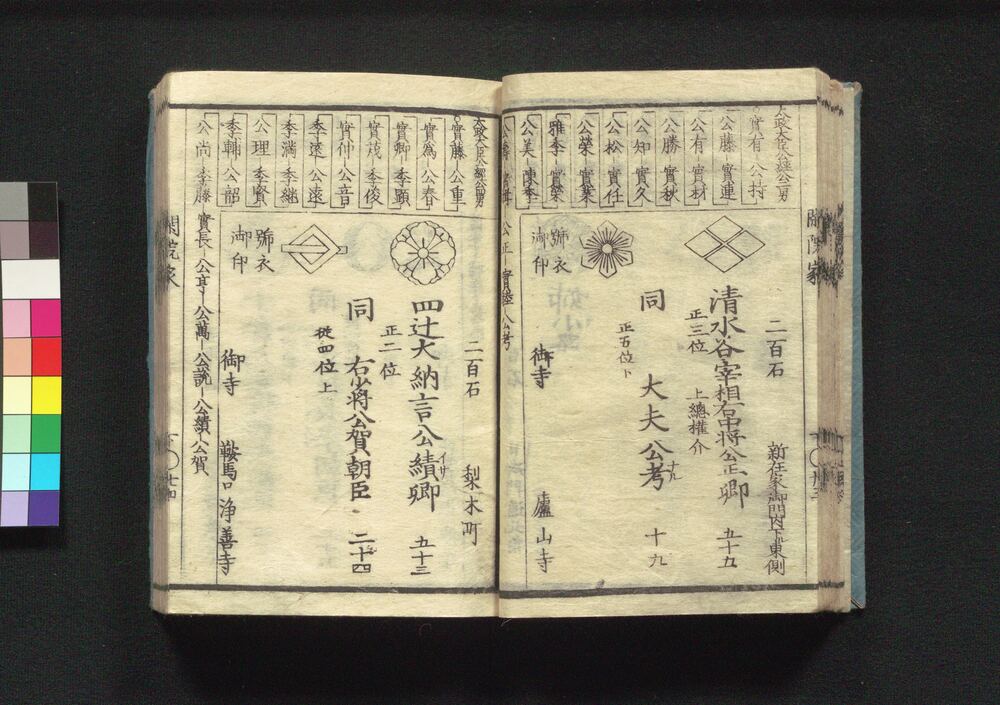 太政大臣公經公二男
實有 公持
公藤 實連
公有 實材
公勝 實秋
公知 實久
公松 實任
公榮 實業
雅季 實榮
公美
公正
二百石
新在家御門内下ル東側
清水谷宰相右中将公正卿 五十九
正三位
上總權介
同 大夫公考 十九
正五位下
號衣
御印
御寺 廬山寺
太政大臣公經公四男
實藤 公重
實為 公春
實卿 季顕
實茂 季俊
實仲 公音
季遠 公遠
季満 季継
公理 季賢
季輔 公韶
公尚 季藤
實長 公亨 公萬 公説 公績 公賀
二百石
梨木町
四辻大納言公績卿 五十三
正二位
イサ
同 右少将公賀朝臣 二十四
從四位上
號衣
御印
御寺 鞍馬口 浄善寺
閑院家